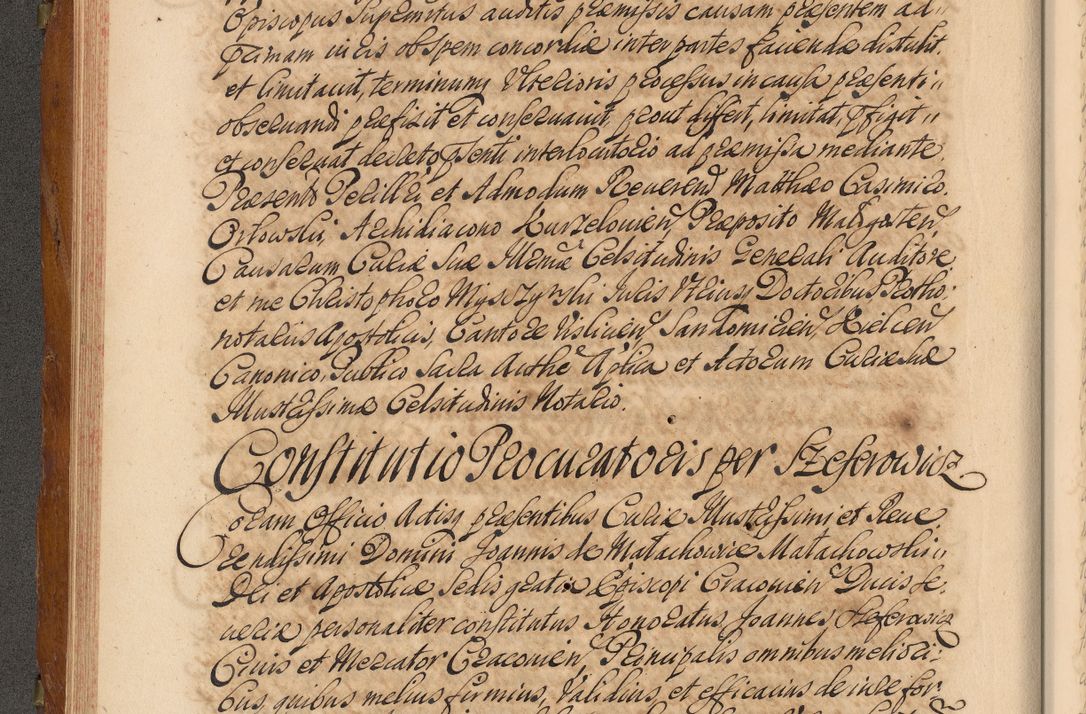 Episcopus Supremitus auditis præmissis causam præsentem ad"
primam iuris ob spem concordiæ inter partes faciendæ distulit
et limitauit, terminumq Vlterioris processus in causa præsenti"
obseruandi præfixit et conseruauit prout differt, limitat, pffigit"
et conseruat decreto pñsenti interlocutorio ad præmissa mediante.
Præsentb Perillri et Admodum Reuerend Matthæo Casimiro
Orłowski, Archidiacono Kurzelouien, Præposito Małgosten,
Causarum Curiæ Suæ Illrmæ Celsitudinis Generali Auditore
et me Christophoro Myszyński Iuris Vtriusq Doctoribus Protho:
notariis Apostolicis, Cantore Vislicien, Sandomirien, Kielcen
Canonico, Publico Sacra Authe Aplica et Actorum Curiæ Suæ
Illustrissimæ Celsitudinis Notario.
Constitutio Procuratoris per Szeferowicz
Coram Officio Actisq præsentibus Curiæ Illustrissimi et Reue
rendissimi Domini Joannis de Małachowice Małachowski"
Dei et Apostolicæ Sedis gratia Episcopi Cracouien Ducis Se,
ueriæ personaliter constitutus Honoratus Joannes Szeferowicz
Ciuis et Mercator Cracouien, Principalis omnibus meliori:
bus, quibus melius firmius, Validius, et efficacius de iure for